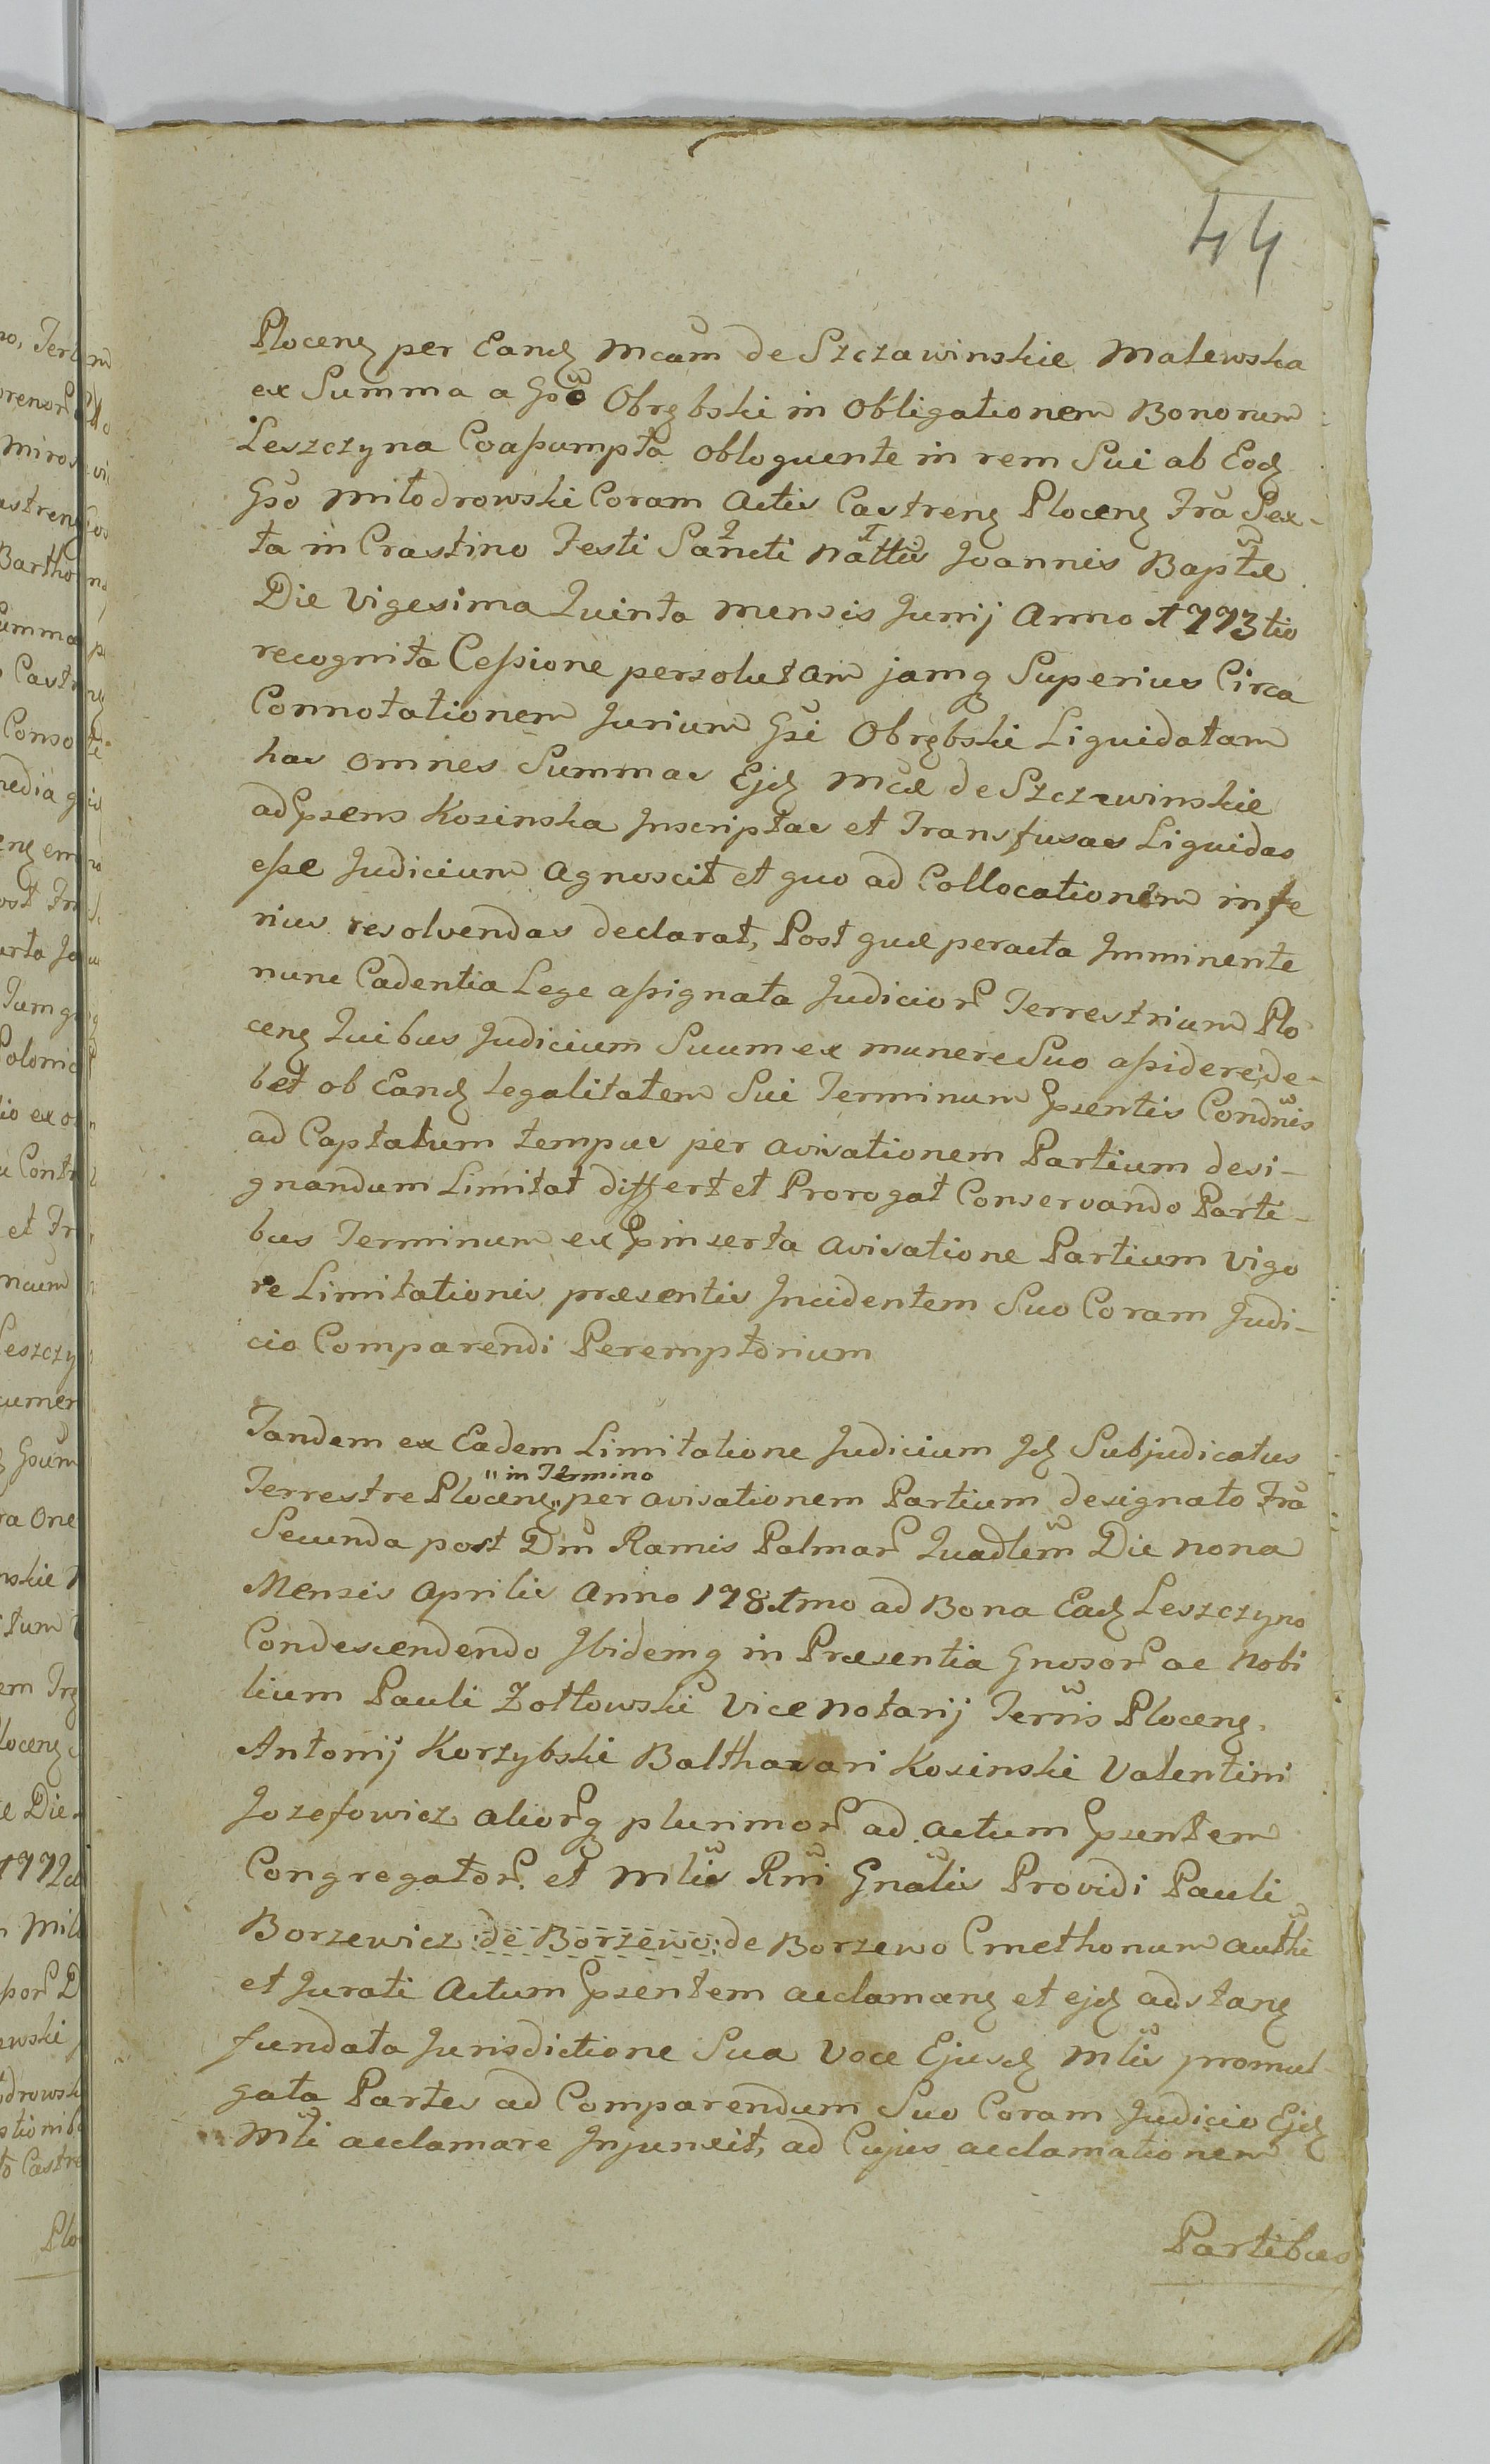 44
Ploceng per Eandg Mcam de Szczawinskie Malewska
ex Summa a Gso Obrębski in Obligationem Bonorum
Leszczyna Coassumpta obloquente in rem Sui ab Eodg
Gso Miłodrowski Coram Actis Castreng Ploceng Fra Sex-
ta in Crastino Festi Sancti Nattis Joannis Baptæ
Die Vigesima Quinta Mensis Junij Anno 1773tio
recognita Cessione persolutam jamq Superius Circa
Connotationem Jurium Gsi Obrębski Liquidatam
has omnes Summas Ejdg Mcæ de Szczawinskie
ad psens Kosinska Inscriptas et Transfusas Liquidas
esse Judicium Agnoscit et quo ad Collocationem infe
rius resolvendas declarat, Post quæ peracta Imminente
nunc Cadentia Lege assignata Judicior Terrestrium Plo
ceng Quibus Judicium Suum ex munere Suo assidere de-
bet ob Eandg legalitatem Sui Terminum psentis Condnis
ad Captatum tempus per avisationem Partium desi-
gnandum Limitat differt et Prorogat Conservando Parti-
bus Terminum ex pinserta avisatione Partium vigo
re Limitationis præsentis Incidentem Suo Coram Judi-
cio Comparendi Peremptorium
Tandem ex Eadem Limitatione Judicium Jdg Subjudicatus
" in Termino
Terrestre Ploceng " per avisationem Partium designato Fra
Secunda post Dm Ramis Palmar Quadlem Die nona
Mensis Aprilis Anno 1781mo ad Bona Eadg Leszczyno
Condescendendo Ibidemq in Præsentia Gnosor ac Nobi
lium Pauli Zołtowski Vice Notarij Terris Ploceng.
Antonij Korzybski Balthasari Kosinski Valentini
Jozefowicz aliorq plurimor ad actum psentem
Congregator. et Mlis Rni Gnalis Providi Pauli
Borzewicz :de Borzewo: de Borzewo Cmethonum authi
et Jurati Actum psentem acclamang et ejdg adstang
fundata Jurisdictione Sua Voce Ejusdg Mlis promul
gata Partes ad Comparendum Suo Coram Judicio Ejdg
Mli acclamare Injunxit, ad Cujus acclamationem
Partibus